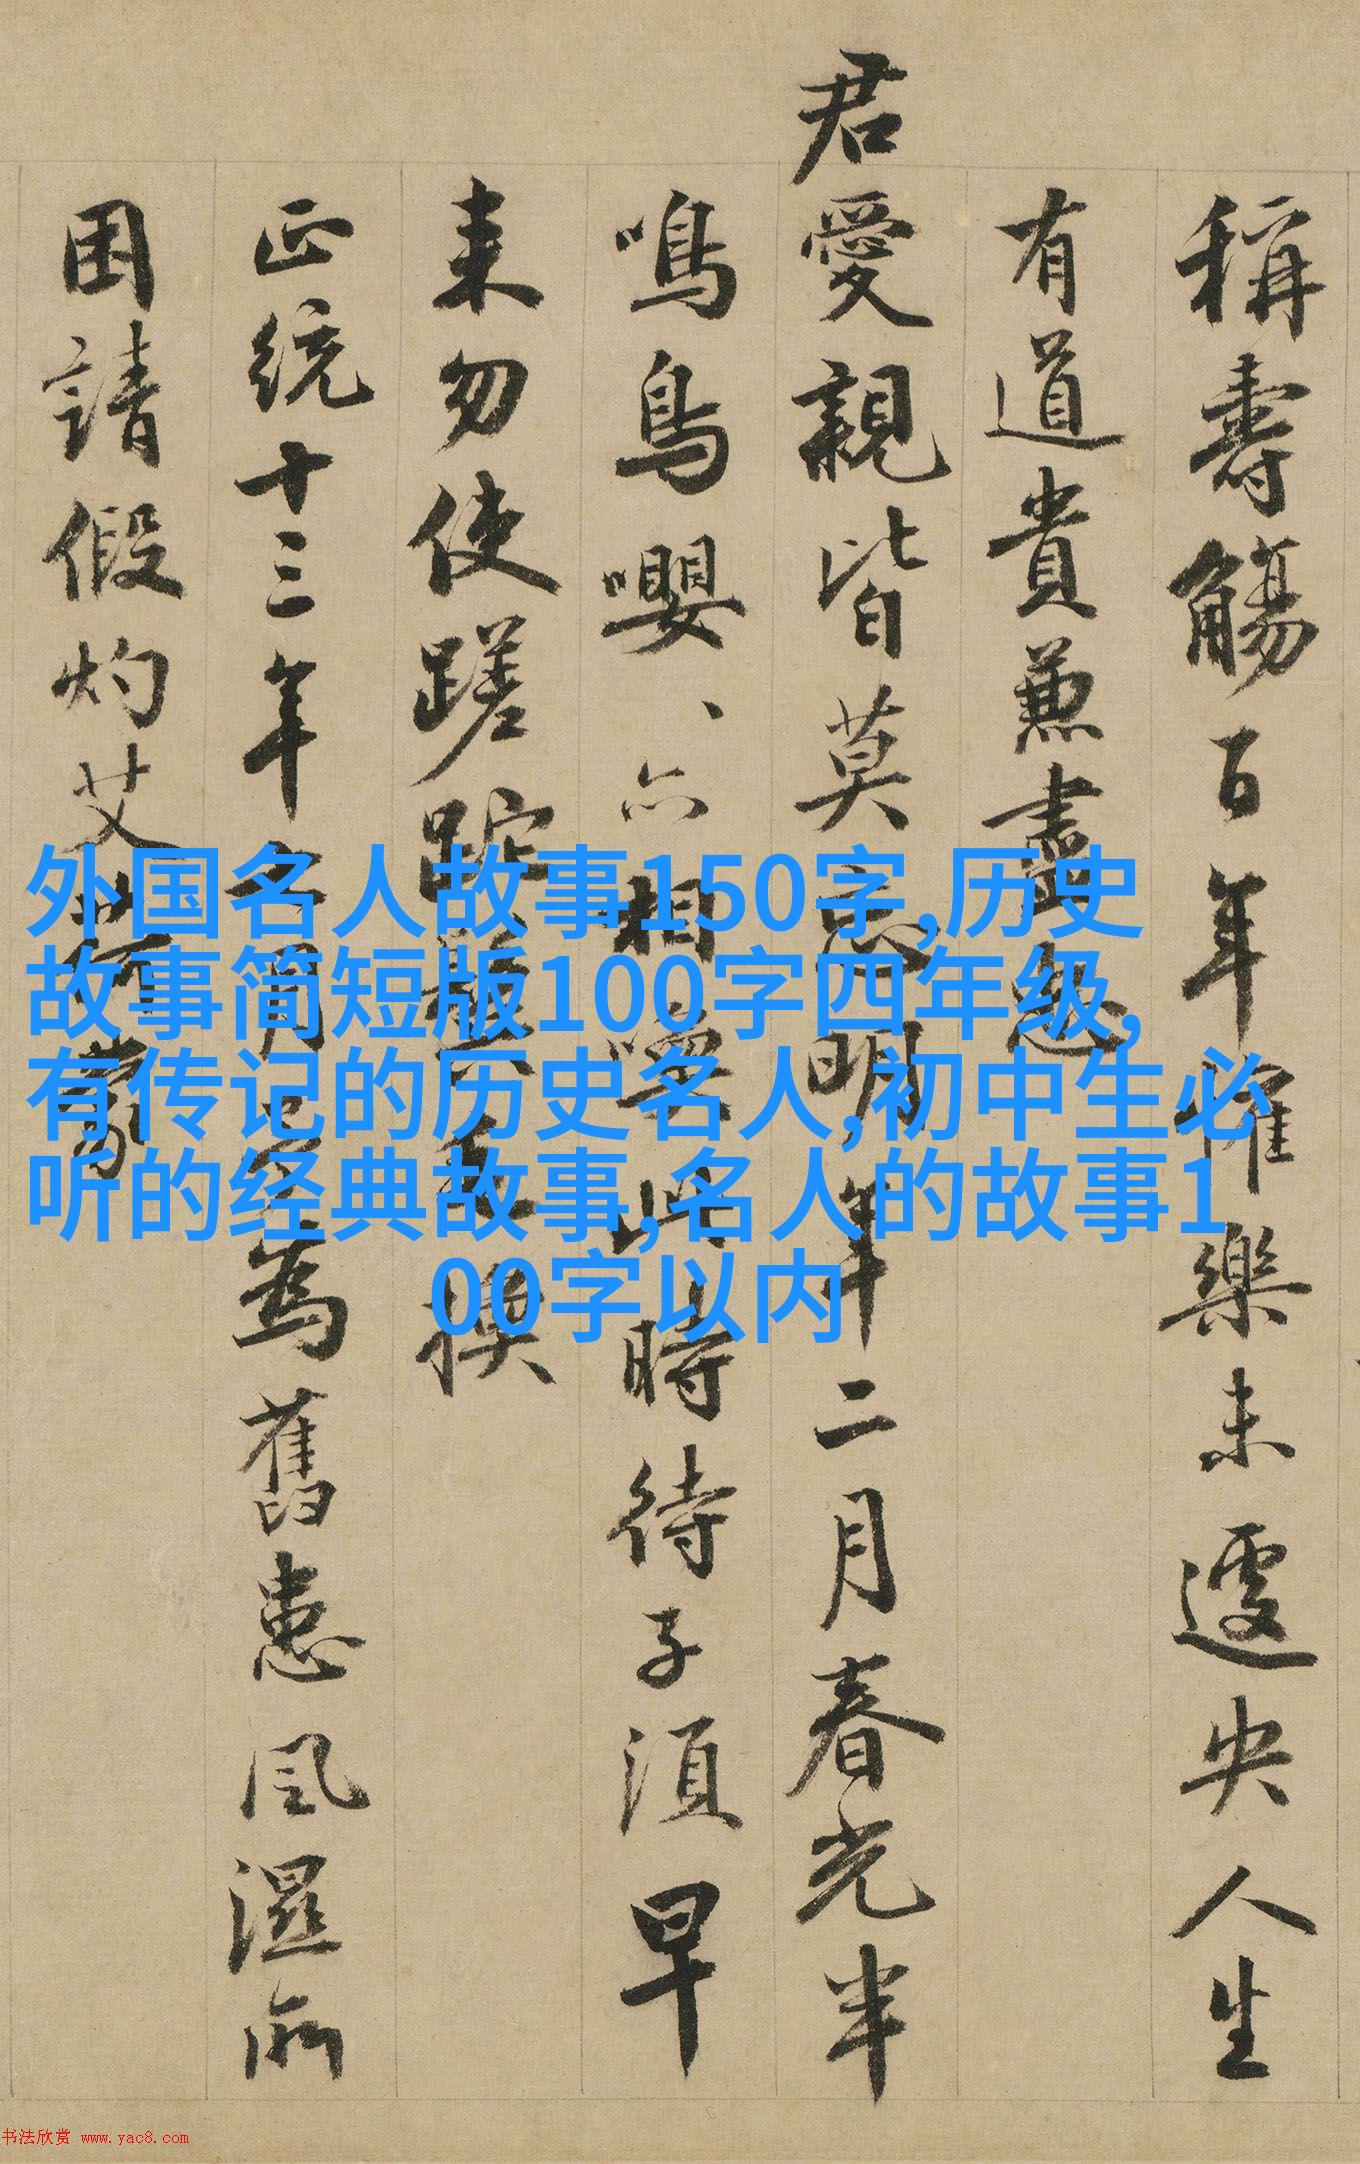 稱壽觴百年惟樂未遽央人生
有道貴兼盡忽
君愛親皆莫忘明年二月春光半
鳴鳥嚶、亦相喚此時待子須早
来勿使蹉跎
正統十三年
月
為舊患風濕所
困請假灼艾
蒙
外国名人故事150字,历史
故事简短版100字四年级,
有传记的历史名人,初中生必
听的经典故事,名人的故事1
00字以内
书法欣赏 www.yac8.com